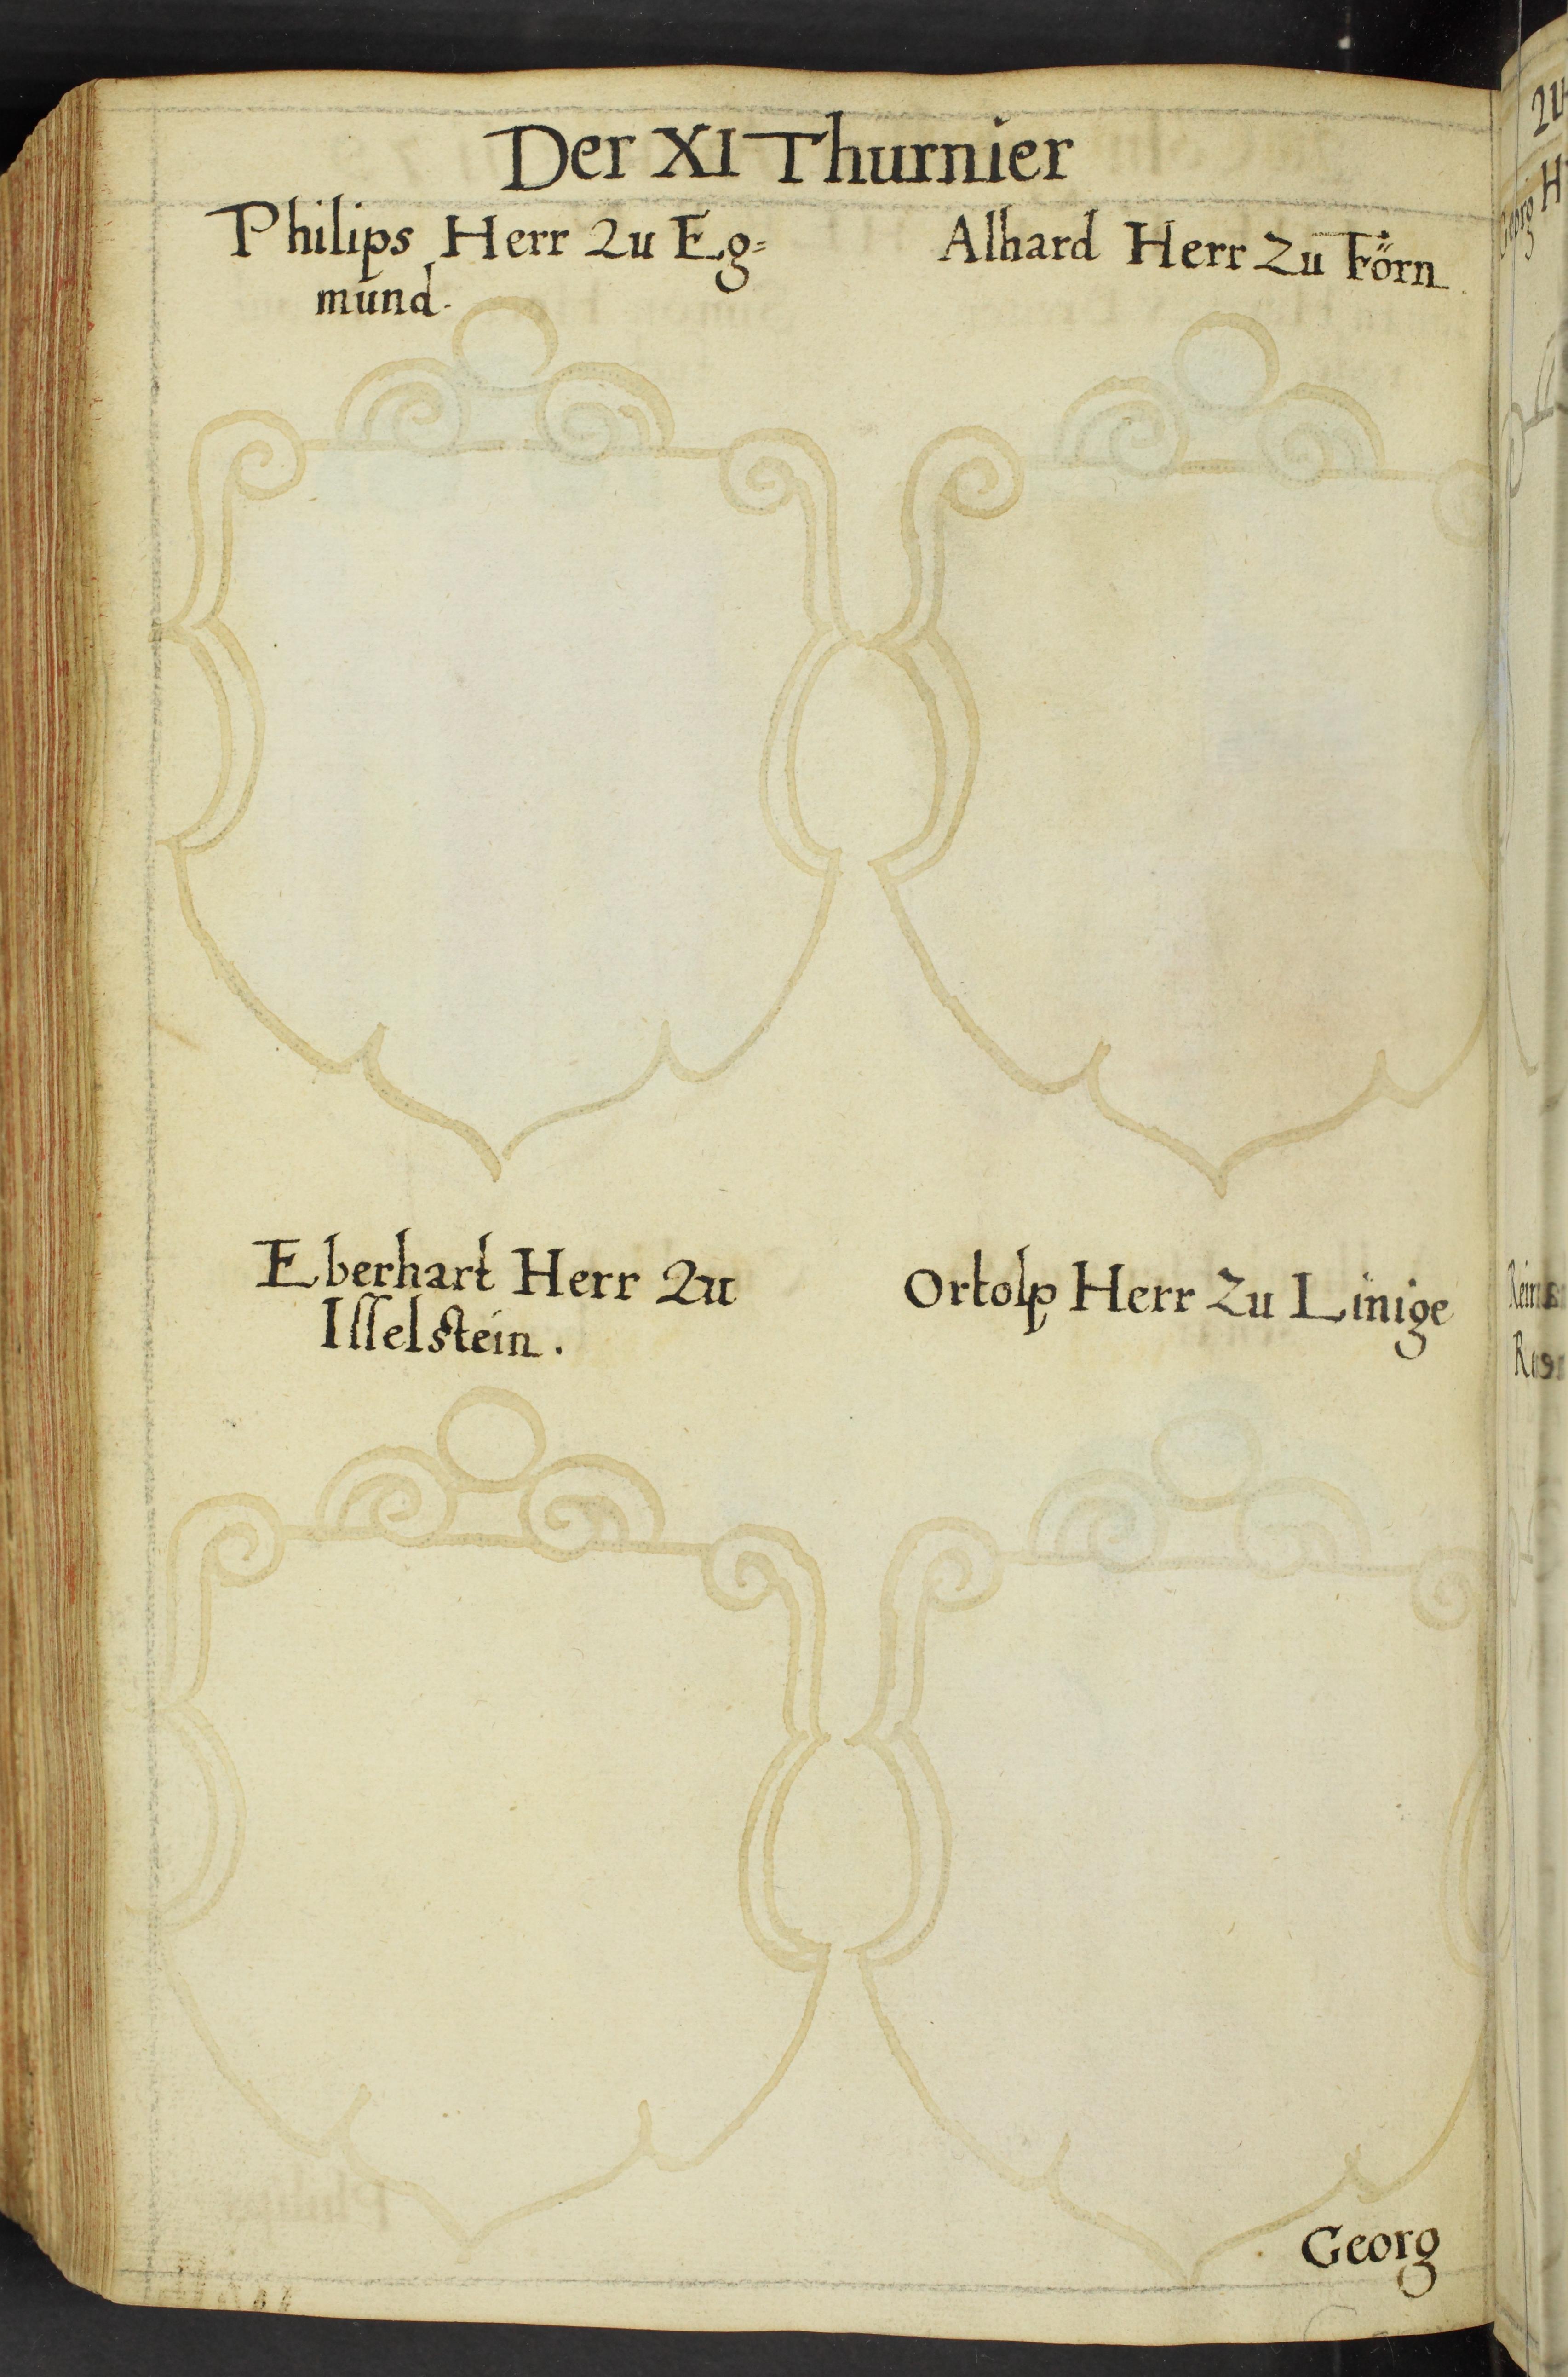 Der XI Thurnier
Philips Herr Zu Eg=
mund.
Alhard Herr Zu Förn
Eberhart Herr Zu
Isselstein.
Ortolp Herr Zu Linige
Georg